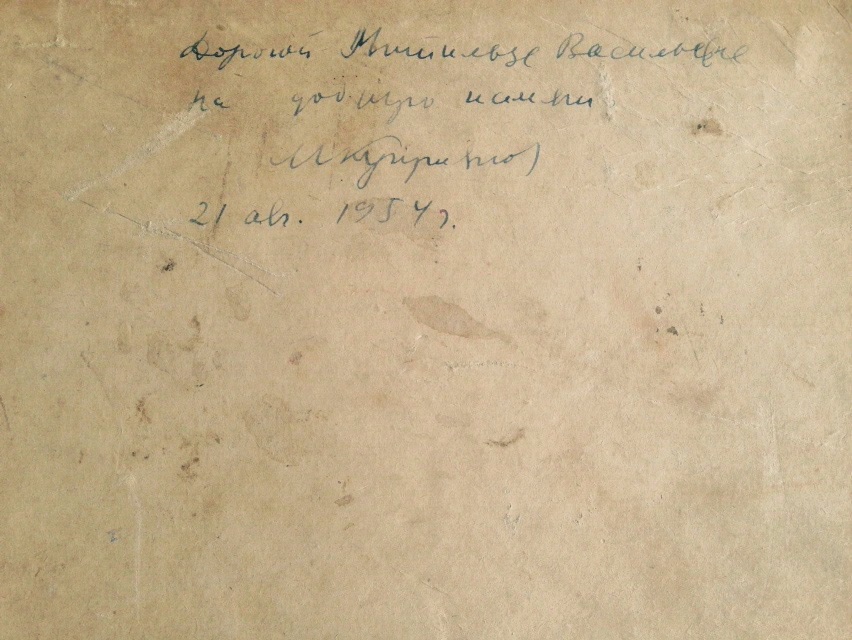 Дорогой Матильде Васильевне
на добрую память
М Куприянов
21 авг. 1954 г.